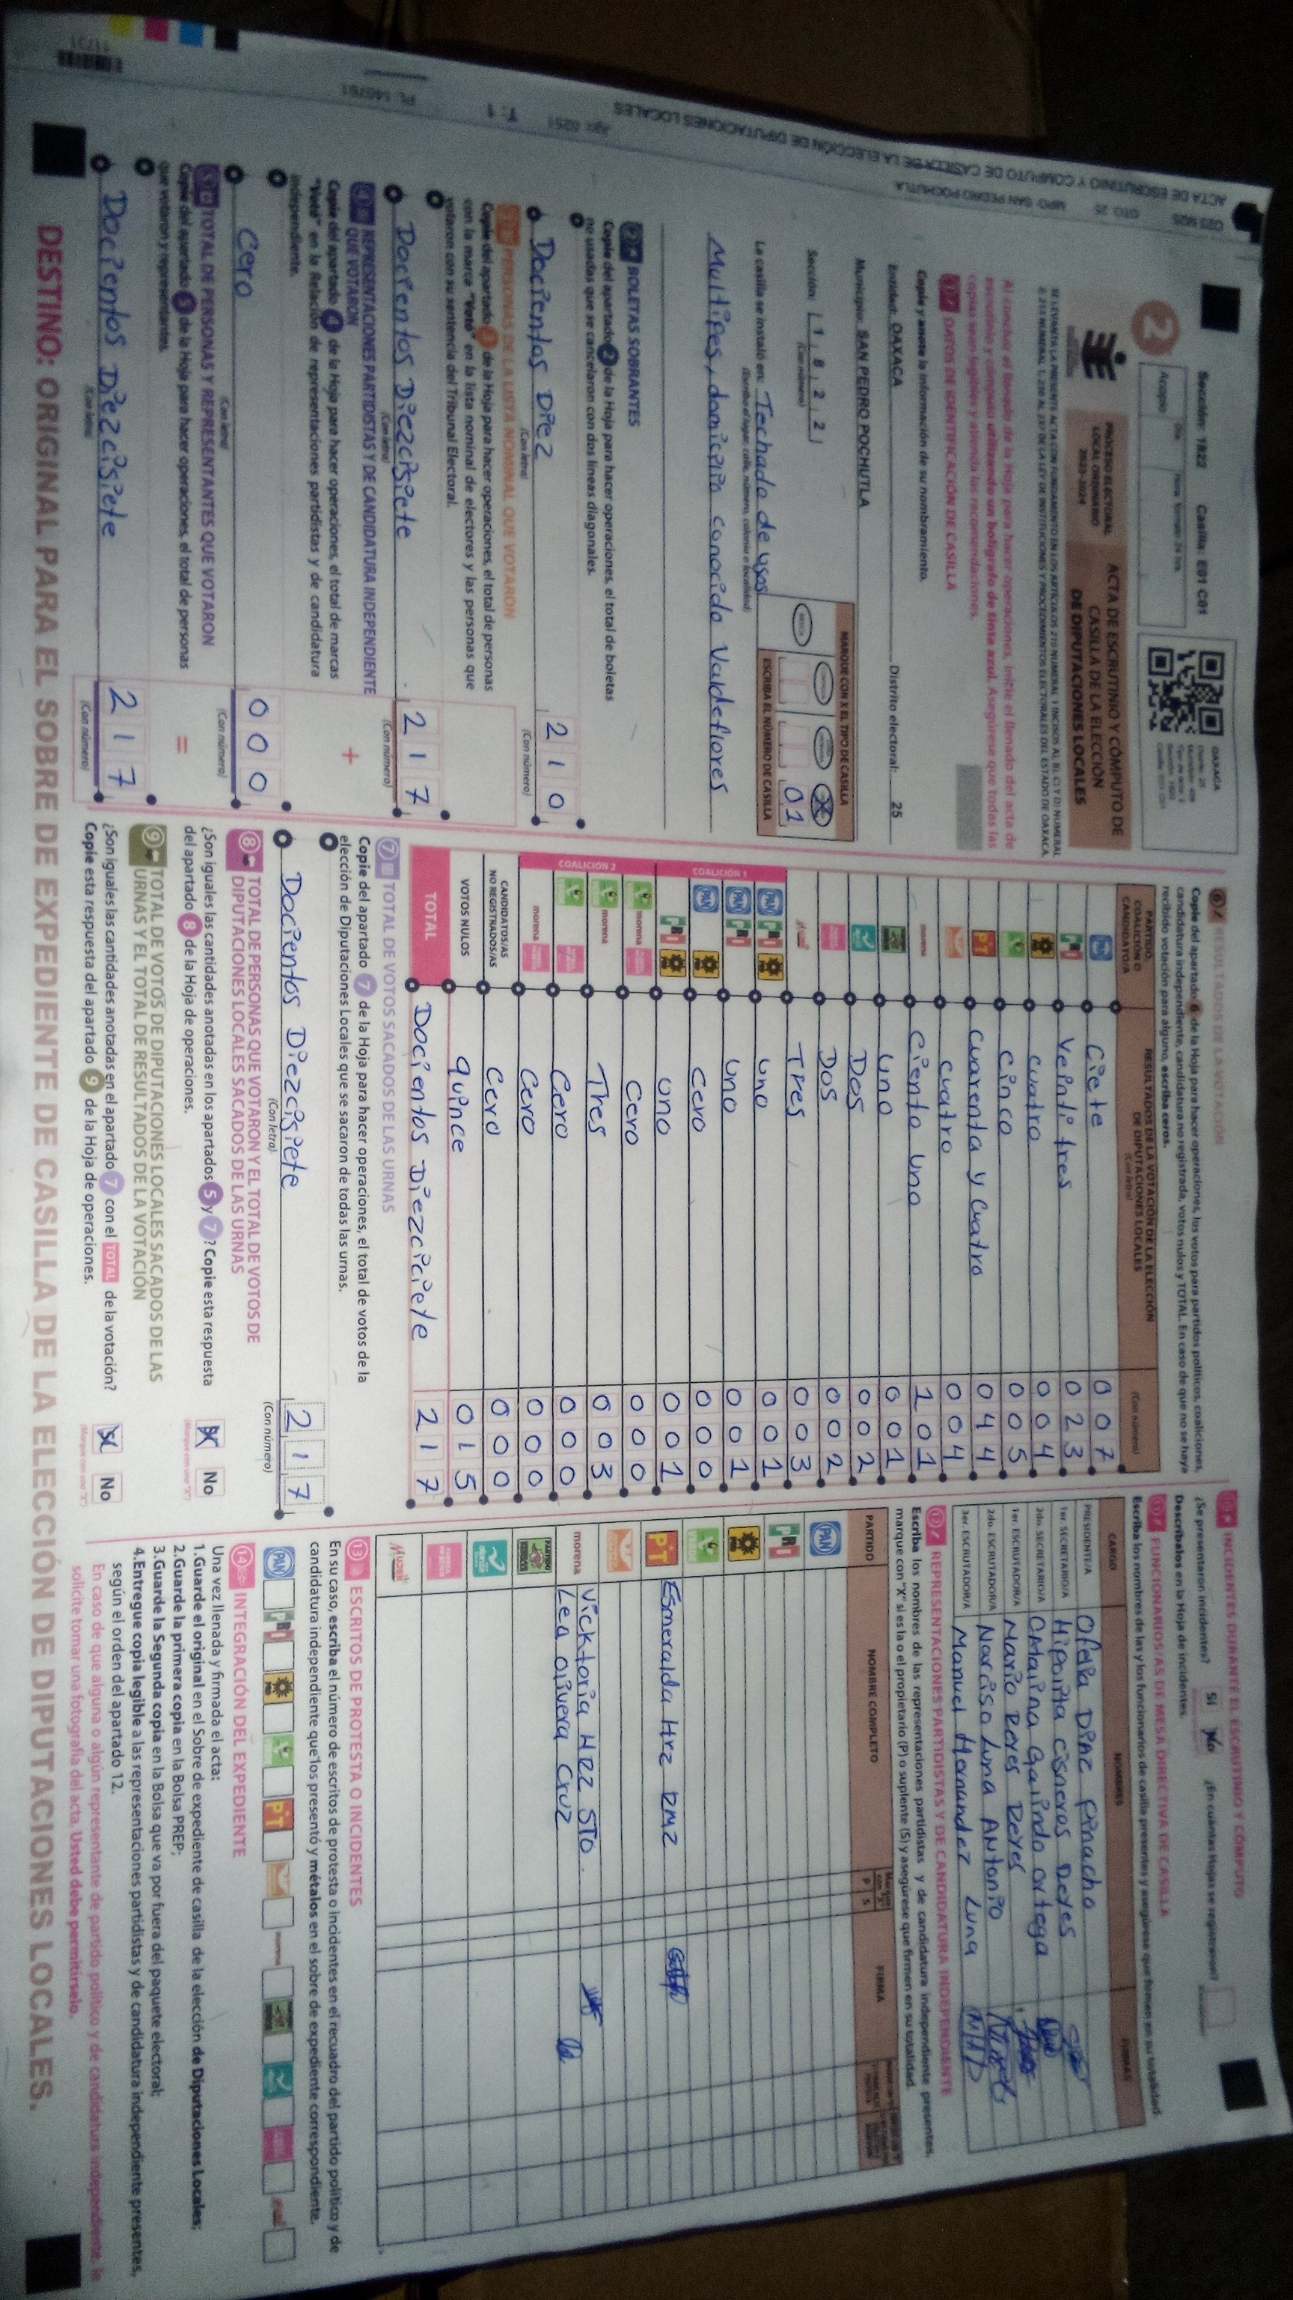 Sección: 1822 Casilla: E01 C01
OAXACA
2
Acopio
PROCESO ELECTORAL
LOCAL ORDINARIO
2023-2024
ACTA DE ESCRUTINIO Y CÓMPUTO DE
CASILLA DE LA ELECCIÓN
DE DIPUTACIONES LOCALES
Al concluir el llenado de la Hoja para hacer operaciones, inicie el llenado del acta de
escrutinio y cómputo utilizando un bolígrafo de tinta azul. Asegúrese que todas las
copias sean legibles y atienda las recomendaciones.
1 DATOS DE IDENTIFICACIÓN DE CASILLA
Copie y anote la información de su nombramiento.
Entidad: OAXACA Distrito electoral: 25
Municipio: SAN PEDRO POCHUTLA
Sección: 1 8 2 2
(Con número)
MARQUE CON X EL TIPO DE CASILLA
ESCRIBA EL NÚMERO DE CASILLA
01
La casilla se instaló en: Techado de usos
(Escriba el lugar, calle, número, colonia o localidad)
Multipes, domicilio conocido Valdeflores
2 BOLETAS SOBRANTES
Copie del apartado 2 de la Hoja para hacer operaciones, el total de boletas
no usadas que se cancelaron con dos líneas diagonales.
Docientos Diez 2 1 0
(Con letra) (Con número)
3 PERSONAS DE LA LISTA NOMINAL QUE VOTARON
Copie del apartado 3 de la Hoja para hacer operaciones, el total de personas
con la marca "Votó" en la lista nominal de electores y las personas que
votaron con su sentencia del Tribunal Electoral.
Docientos Diezcisiete 2 1 7
(Con letra) (Con número)
4 REPRESENTACIONES PARTIDISTAS Y DE CANDIDATURA INDEPENDIENTE
QUE VOTARON
+
Copie del apartado 4 de la Hoja para hacer operaciones, el total de marcas
"Votó" en la Relación de representaciones partidistas y de candidatura
independiente.
Cero 0 0 0
(Con letra) (Con número)
5 TOTAL DE PERSONAS Y REPRESENTANTES QUE VOTARON
=
Copie del apartado 5 de la Hoja para hacer operaciones, el total de personas
que votaron y representantes.
Docientos Diezcisiete 2 1 7
(Con letra) (Con número)
6 RESULTADOS DE LA VOTACIÓN
Copie del apartado 6 de la Hoja para hacer operaciones, los votos para partidos políticos, coaliciones,
candidatura independiente, candidatura no registrada, votos nulos y TOTAL. En caso de que no se haya
recibido votación para alguno, escriba ceros.
PARTIDO, COALICIÓN O CANDIDATO/A
RESULTADOS DE LA VOTACIÓN DE LA ELECCIÓN
DE DIPUTACIONES LOCALES
(Con letra) (Con número)
PAN Ciete 0 0 7
PRI Veinti tres 0 2 3
PRD Cuatro 0 0 4
Cinco 0 0 5
PT Cuarenta y Cuatro 0 4 4
cuatro 0 0 4
morena Ciento uno 1 0 1
Uno 0 0 1
Dos 0 0 2
Dos 0 0 2
Tres 0 0 3
COALICIÓN 1
PAN PRI PRD Uno 0 0 1
PAN PRI Uno 0 0 1
PAN PRD Cero 0 0 0
PRI PRD Uno 0 0 1
COALICIÓN 2
morena Cero 0 0 0
morena Tres 0 0 3
Cero 0 0 0
morena Cero 0 0 0
CANDIDATOS/AS
NO REGISTRADOS/AS Cero 0 0 0
VOTOS NULOS quince 0 1 5
TOTAL Docientos Diezciciete 2 1 7
7 TOTAL DE VOTOS SACADOS DE LAS URNAS
Copie del apartado 7 de la Hoja para hacer operaciones, el total de votos de la
elección de Diputaciones Locales que se sacaron de todas las urnas.
Docientos Diezcisiete 2 1 7
(Con letra) (Con número)
8 TOTAL DE PERSONAS QUE VOTARON Y EL TOTAL DE VOTOS DE
DIPUTACIONES LOCALES SACADOS DE LAS URNAS
¿Son iguales las cantidades anotadas en los apartados 5 y 7? Copie esta respuesta
del apartado 8 de la Hoja de operaciones.
No
9 TOTAL DE VOTOS DE DIPUTACIONES LOCALES SACADOS DE LAS
URNAS Y EL TOTAL DE RESULTADOS DE LA VOTACIÓN
¿Son iguales las cantidades anotadas en el apartado 7 con el TOTAL de la votación?
Copie esta respuesta del apartado 9 de la Hoja de operaciones.
No
10 INCIDENTES DURANTE EL ESCRUTINIO Y CÓMPUTO
¿Se presentaron incidentes? Sí No ¿En cuántas Hojas se registraron?
Descríbalos en la Hoja de incidentes.
11 FUNCIONARIOS/AS DE MESA DIRECTIVA DE CASILLA
Escriba los nombres de las y los funcionarios de casilla presentes y asegúrese que firmen en su totalidad.
CARGO NOMBRES FIRMAS
PRESIDENTE/A Ofelia Diaz Pinacho
1er. SECRETARIO/A Hipolita Cisneros Reyes
2do. SECRETARIO/A OMtaina Galindo Ortega
1er. ESCRUTADOR/A Mario Reyes Reyes
2do. ESCRUTADOR/A Narciso Luna Antonio
3er. ESCRUTADOR/A Manuel Hernandez Luna
12 REPRESENTACIONES PARTIDISTAS Y DE CANDIDATURA INDEPENDIENTE
Escriba los nombres de las representaciones partidistas y de candidatura independiente presentes,
marque con "X" si es la o el propietario (P) o suplente (S) y asegúrese que firmen en su totalidad.
PARTIDO NOMBRE COMPLETO P S FIRMA
PAN
PRI
PRD
PT Esmeralda Hrz RMZ
morena Vicktoria HRZ STO.
Lea Olivera Cruz
MUJER
13 ESCRITOS DE PROTESTA O INCIDENTES
En su caso, escriba el número de escritos de protesta o incidentes en el recuadro del partido político y de
candidatura independiente que los presentó y métalos en el sobre de expediente correspondiente.
PAN PRI PRD PT
14 INTEGRACIÓN DEL EXPEDIENTE
Una vez llenada y firmada el acta:
1.Guarde el original en el Sobre de expediente de casilla de la elección de Diputaciones Locales;
2.Guarde la primera copia en la Bolsa PREP;
3.Guarde la Segunda copia en la Bolsa que va por fuera del paquete electoral;
4.Entregue copia legible a las representaciones partidistas y de candidatura independiente presentes,
según el orden del apartado 12.
En caso de que alguna o algún representante de partido político y de candidatura independiente, le
solicite tomar una fotografía del acta, Usted debe permitírselo.
DESTINO: ORIGINAL PARA EL SOBRE DE EXPEDIENTE DE CASILLA DE LA ELECCIÓN DE DIPUTACIONES LOCALES.
ACTA DE ESCRUTINIO Y CÓMPUTO DE CASILLA DE LA ELECCIÓN DE DIPUTACIONES LOCALES
DTO 25 MPO. SAN PEDRO POCHUTLA
T: 1